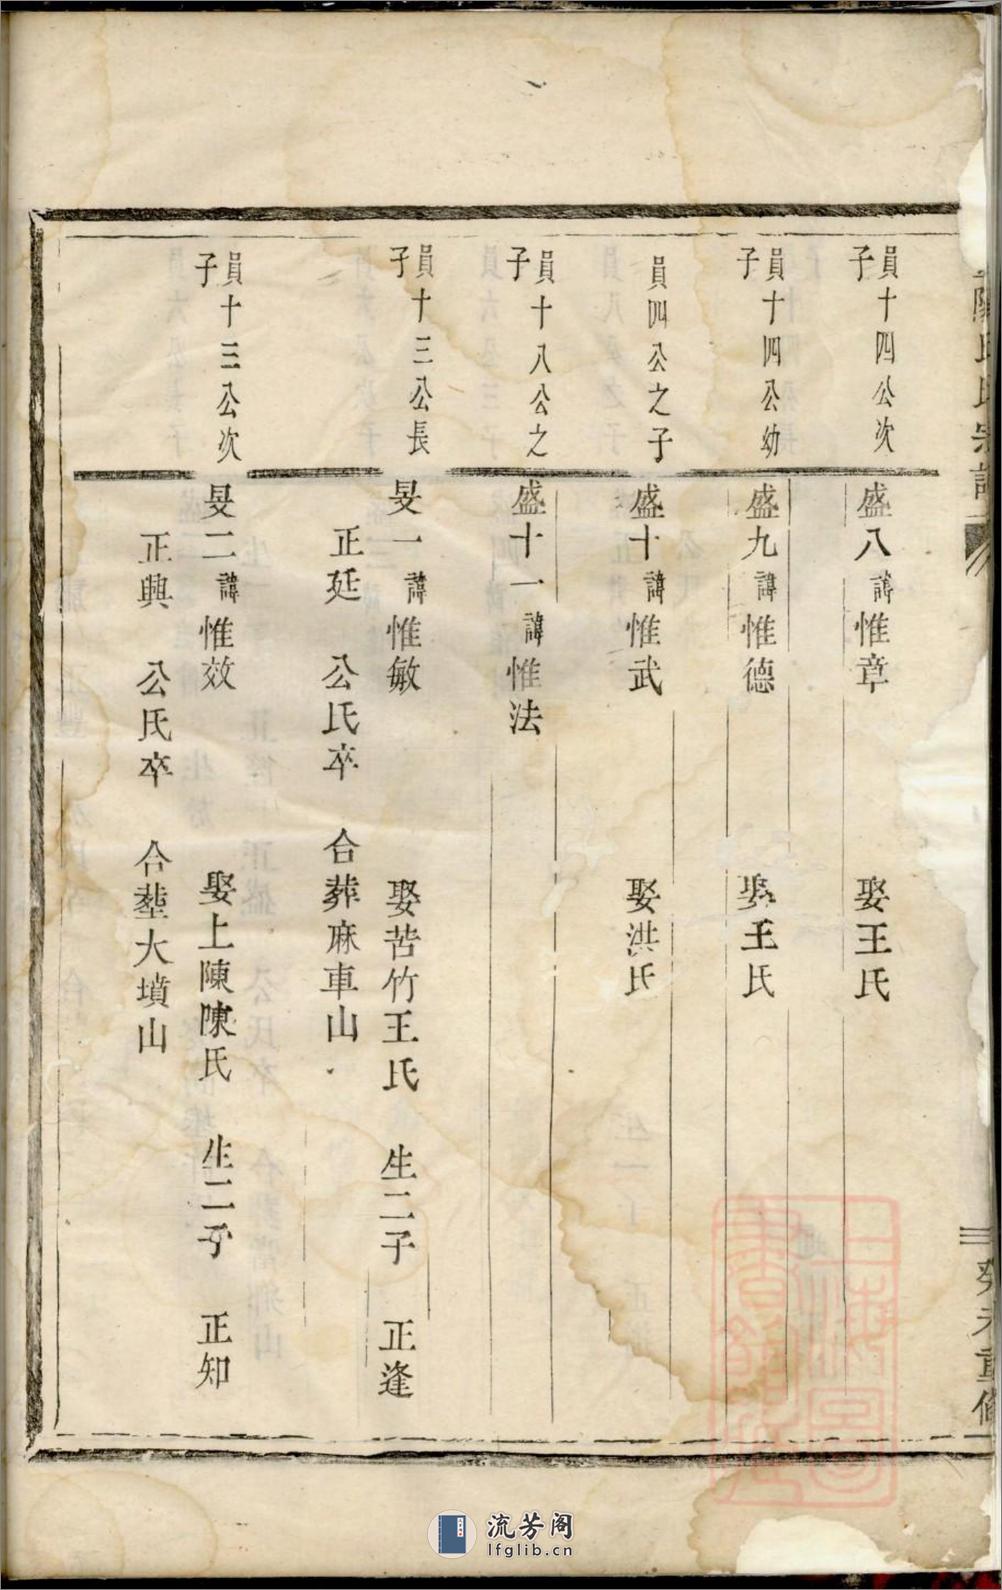 員十四公次
子
盛八諱惟章 娶王氏
員十四公幼
子
盛九諱惟德 娶王氏
員四公之子
盛十諱惟武 娶洪氏
員十八公之
子
盛十一諱惟法
員十三公長
子
旻一諱惟敏 娶苦竹王氏 生二子 正逢
正延 公氏卒 合葬麻車山
員十三公次
子
旻二諱惟效 娶上陳陳氏 生二子 正知
正興 公氏卒 合塟大墳山
氏宗譜
癸未重修
流芳阁
lfglib.cn